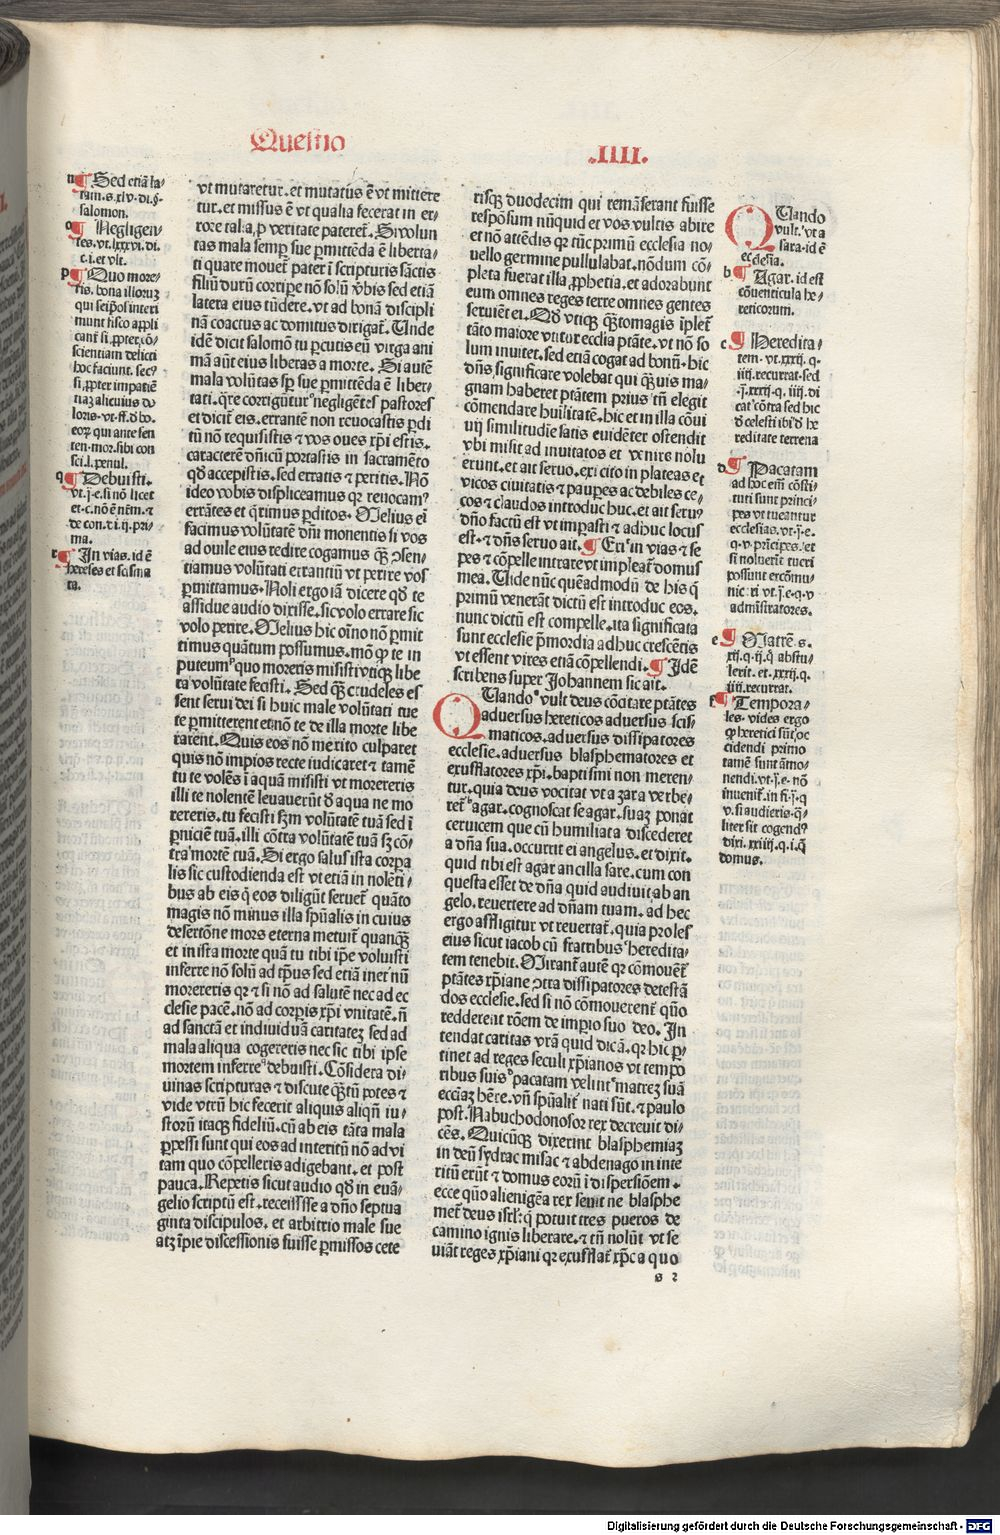 Questio
.IIII.
n ¶ Sed etiã sa⸗
rum.s.xlv.di.§.
salomon.
o ¶ Negligen⸗
tes.vt.lxxxvi.di.
c.i.et vlt.
p ¶ Quo more⸗
ris. bona illioruʒ
qui seip̃os interi
munt fisco appli
cant̃ si ꝓpter cõ⸗
scientiam delicti
hoc faciunt. secꝰ
si ꝓpter impatiẽ
tiaʒ alicuius do
loris.vt.ff.d̃ bo.
eoꝝ qui ante sen
ten.mor.sibi con
sci.l.penul.
q ¶ Debuisti.
vt.j.e.si nõ licet
et.c.nõ ẽ nẽm.⁊
de con.d̃i.ij.pri⸗
ma.
r ¶ In vias.id ẽ
hereses et scisma
ta.
vt mutaretur.et mutatus ẽ vt mittere
tur.et missus ẽ vt qualia fecerat in er⸗
rore talia ꝓ veritate pateret̃. Si volun
tas mala semꝑ sue ꝑmittẽda ẽ liberta⸗
ti quare mouet̃ pater ĩ scripturis sãctis
filiũ durũ corripe nõ solũ v̾bis sed etiã
latera eius tũdere. vt ad bonã discipli
nã coactus ac domitus dirigat̃. Unde
idẽ dicit salomõ tu ꝑcutis eũ virga ani
mã aũt eius liberas a morte. Si autẽ
mala volũtas sp̃ sue ꝑmittẽda ẽ liber⸗
tati.q̃re corrigũtur negligẽtes pastores
et dicit̃ eis. errantẽ non reuocastis ꝑdi
tũ nõ requisistis ⁊ vos oues xp̃i estis.
caracterẽ dñicũ portastis in sacramẽto
qd̃ accepistis. sed erratis ⁊ peritis. Nõ
ideo vobis displiceamus qꝛ reuocamꝰ
errãtes et q̃rimus ꝑditos. Melius em̃
facimus volũtatẽ dñi monentis si vos
ad ouile eius redire cogamus q̃ꝫ ꝯsen⸗
tiamus volũtati errantiũ vt perire vos
ꝑmittamus. Noli ergo iã dicere qd̃ te
assidue audio dixisse. sic volo errare sic
volo perire. Melius hic oĩno nõ ꝑmit
timus quãtum possumus. mõ ꝙ te in
puteumᵖ quo moreris misisti vtiqꝫ libe
ra volũtate fecisti. Sed q̃ꝫ crudeles es
sent serui dei si huic male volũtati tue
te ꝑmitterent et nõ te de illa morte libe
rarent. Quis eos nõ merito culparet
quis nõ impios recte iudicaret ⁊ tamẽ
tu te volẽs ĩ aquã misisti vt morereris
illi te nolentẽ leuauerũt d̃ aqua ne mo
rereris. tu fecisti ẜm volũtatẽ tuã sed ĩ
ꝑniciẽ tuã. illi cõtra volũtatẽ tuã sꝫ cõ⸗
tra mortẽ tuã. Si ergo salus ista corpa
lis sic custodienda est vt etiã in nolẽti⸗
bus ab eis q̃ eos diligũt seruet̃ quãto
magis nõ minus illa spũalis in cuius
desertõne mors eterna metuit̃ quanqꝫ
et in ista morte quã tu tibi ip̃e voluisti
inferre nõ solũ ad tp̃us sed etiã inet̾nũ
morereris qꝛ ⁊ si nõ ad salutẽ nec ad ec
clesie pacẽ. nõ ad corpis xp̃i vnitatẽ. ñ
ad sanctã et indiuiduã caritateʒ sed ad
mala aliqua cogereris nec sic tibi ipse
mortem inferre debuisti. Cõsidera di⸗
uinas scripturas ⁊ discute q̃ꝫtũ potes ⁊
vide vtrũ hic fecerit aliquis aliqñ iu⸗
storũ itaqꝫ fideliũ. cũ ab eis tãta mala
ꝑpessi sunt qui eos ad interitũ nõ ad vi
tam quo cõpelleris adigebant. et post
pauca. Repetis sicut audio qd̃ in euã⸗
gelio scriptũ est. recessisse a dño septua
ginta discipulos. et arbitrio male sue
atqꝫ ĩpie discessionis fuisse ꝑmissos cete
risqꝫ duodecim qui remãserant fuisse
respõsum nũquid et vos vultis abire
et nõ attẽdis qꝛ tũc primũ ecclesia no⸗
uello germine pullulabat. nõdum cõ⸗
pleta fuerat illa ꝓphetia. et adorabunt
eum omnes reges terre omnes gentes
seruiẽt ei. Qd̃ vtiqꝫ q̃ꝫtomagis ĩplet̃
tãto maiore vtitur ecclia ptãte. vt nõ so
lum inuitet. sed etiã cogat ad bonũ. hic
dñs significare volebat qui q̃ꝫuis ma⸗
gnam haberet ptãtem prius tñ elegit
cõmendare huilitatẽ. hic et in illa cõui
uij similitudĩe satis euidẽter ostendit
vbi misit ad inuitatos et venire nolu
erunt. et ait seruo. exi cito in plateas et
vicos ciuitatis ⁊ pauꝑes ac debiles ce⸗
cos ⁊ claudos introduc huc. et ait seruꝰ
dño factũ est vt imꝑasti ⁊ adhuc locus
est. ⁊ dñs seruo ait. ¶ Exi in vias ⁊ se
pes ⁊ cõpelle intrare vt impleat̃ domus
mea. Uide nũc quẽadmodũ de his q̃
primũ venerãt dictũ est introduc eos.
nunc dictũ est compelle. ita significata
sunt ecclesie p̃mordia adhuc crescẽtis
vt essent vires etiã cõpellendi. ¶ Idẽ
scribens super Johannem sic ait.
Quando vult deus cõcitare ptãtes
aduersus hereticos aduersus scis⸗
maticos. aduersus dissipatores
ecclesie. aduersus blasphematores et
exufflatores xp̃i. baptismi non miren⸗
tur. quia deus vocitat vt a zara verbe⸗
ret̃ ᵇagar. cognoscat se agar. suaʒ ponat
ceruicem que cũ humiliata discederet
a dña sua. occurrit ei angelus. et dixit.
quid tibi est agar ancilla sare. cum con
questa esset de dña quid audiuit ab an
gelo. reuertere ad dñam tuam. ad hec
ergo affligitur vt reuertat̃. quia proles
eius sicut iacob cũ fratribus ᶜhereditá⸗
tem tenebit. Mirant̃ autẽ qꝛ cõmouẽt̃
ptãtes xp̃iane ꝯtra dissipatores detestã
dos ecclesie. sed si nõ cõmouerent̃ quo
redderent rõem de imperio suo deo. In
tendat caritas vrã quid dicã. qꝛ hic ꝑ⸗
tinet ad reges seculi xp̃ianos vt tempo
ribus suis ᵈpacatam velint ᵉmatreʒ suã
ecciaʒ hẽre. vñ spũalit̃ nati sũt. ⁊ paulo
post. Nabuchodonosor rex decreuit di⸗
cẽs. Quicũqꝫ dixerint blasphemiaʒ
in deũ sydrac misac ⁊ abdenago in inte
ritũ erũt ⁊ domus eorũ ĩ dispersiõem.
ecce quo alienigẽa rex seuit ne blasphe
met̃ deus isrl̃. q̃ potuit tres pueros de
camino ignis liberare. ⁊ tñ nolũt vt se
uiãt reges xp̃iani qꝛ exufflat̃ xp̃c a quo
s 2
Quando
vult. vt a
sara.id ẽ
ecclesia.
b ¶ Agar.id est
cõuenticula he⸗
reticorum.
c ¶ Heredita⸗
tem.vt.xxxij.q.
iiij.recurrat.sed
.j.xxxij.q.iiij.di
cat̃ cõtra sed hic
d̃ celesti ibi d̃ he
reditate terrena
d ¶ Pacatam
ad hoc em̃ cõsti⸗
tuti sunt princi⸗
pes vt tueantur
ecclesias.vt.j.e.
q.v.prĩcipes.et
si noluerit tueri
possunt excõmu⸗
nicari vt.j.e.q.v
admĩstratores.
e ¶ Matrẽ.s.
xij.q.ij.q̃ abstu⸗
lerit.et.xxxij.q.
iiij.recurrat.
f ¶ Tempora⸗
les.vides ergo
ꝙ heretici sũt oc
cidendi primo
tamẽ sunt ãmo⸗
nendi.vt.j.e.nõ
inuenit̃.in fi.j.q
v.si audieris.q̃⸗
liter sit cogendꝰ
dixi.xxiij.q.i.q̃
domus.
Digitalisierung gefördert durch die Deutsche Forschungsgemeinschaft - DFG